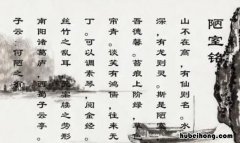 陋室铭
山不在高,有仙则名。水
深,有龙则灵。斯是陋
吾德馨。苔痕上阶绿,
帘青。谈笑有鸿儒,往来无
丁。可以调素琴,阅金经。
丝竹之乱耳,无案牍之劳形
南阳诸葛庐,西蜀子云亭。
子云:何陋之
hubeihong.com